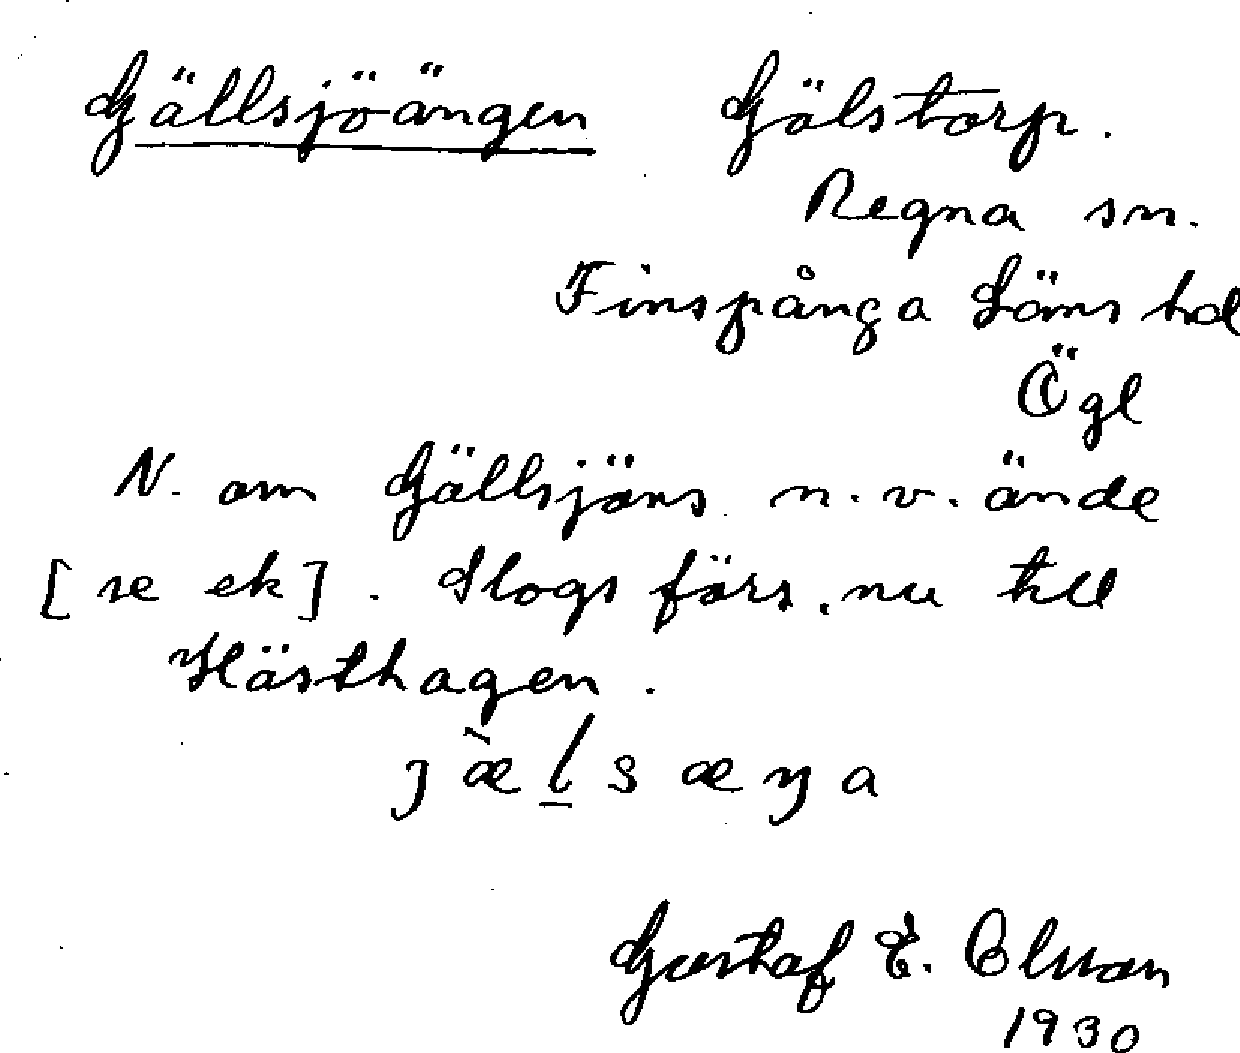 Gällsjöängen Gölstorp.
Regna sn.
Finspånga Läns hd
Ögl
N. om Gällsjöns n.v. ände
[se ek]. Slogs förr, nu till
Hästhagen.
jæ̀l̲sæŋa
Gustaf E. Olsson
1930